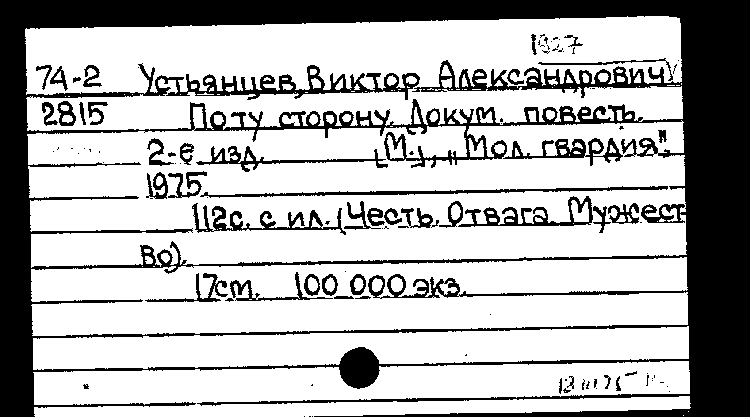 1927
74-2 Устьянцев, Виктор Александрович
2815 По ту сторону. Докум. повесть.
2-е изд. [М.], „Мол. гвардия",
1975.
112с. с ил. (Честь. Отвага. Мужест-
во).
17см. 100 000 экз.